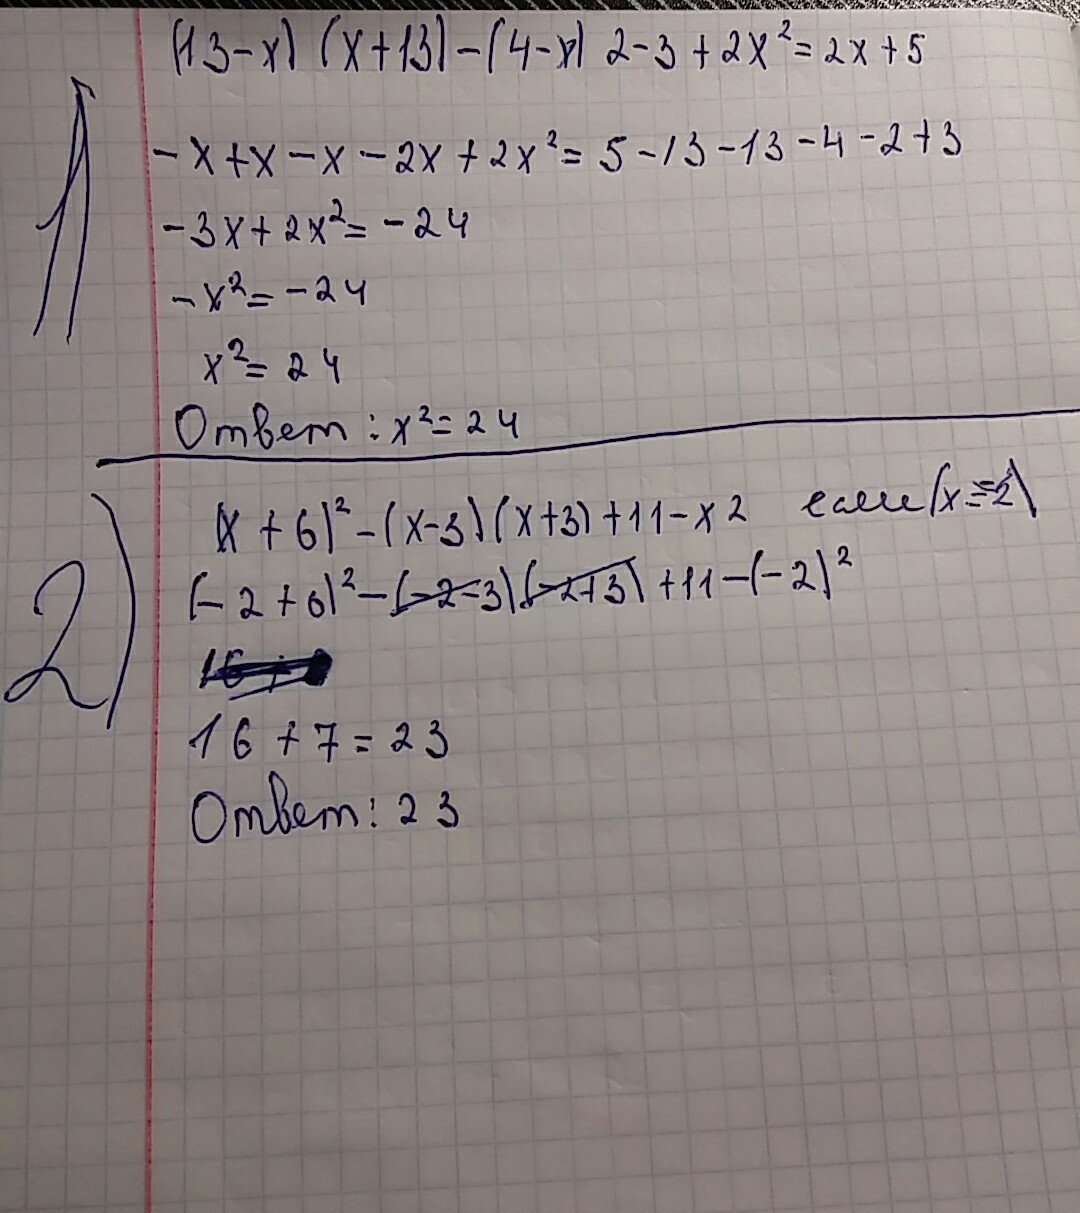 (13-x) (x+13)-(4-x) 2-3+2x²=2x+5
1
-x+x-x-2x+2x²=5-13-13-4-2+3
-3x+2x²=-24
-x²=-24
x²=24
Ответ: x²=24
2)
(x+6)²-(x-3)(x+3)+11-x2 если (x=-2)
(-2+6)²-(-2-3)(-2+3)+11-(-2)²
16+7=23
Ответ: 23